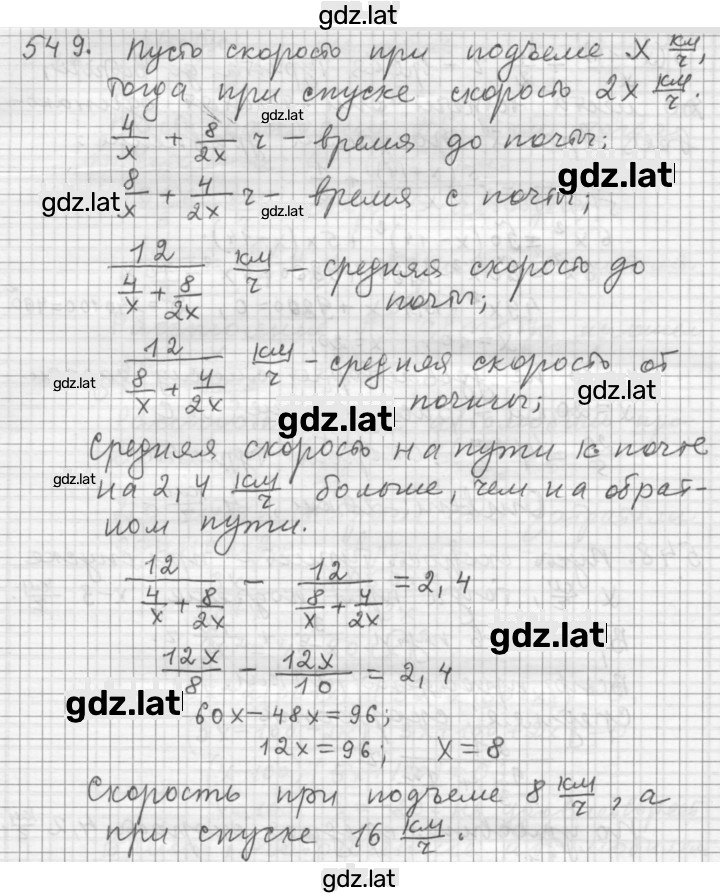 gdz.lat
549. Пусть скорость при подъеме x км/ч,
тогда при спуске скорость 2x км/ч.
gdz.lat
4/x + 8/2x ч – время до почты;
gdz.lat
8/x + 4/2x ч – время с почты;
gdz.lat
gdz.lat
12/(4/x + 8/2x) км/ч – средняя скорость до
почты;
12/(8/x + 4/2x) км/ч – средняя скорость от
gdz.lat
gdz.lat
почты;
gdz.lat
Средняя скорость на пути к почте
gdz.lat
на 2,4 км/ч больше, чем на обрат-
ном пути.
12/(4/x + 8/2x) – 12/(8/x + 4/2x) = 2,4
gdz.lat
12x/8 – 12x/10 = 2,4
gdz.lat
60x – 48x = 96;
12x = 96; x = 8
Скорость при подъеме 8 км/ч, а
при спуске 16 км/ч.
gdz.lat